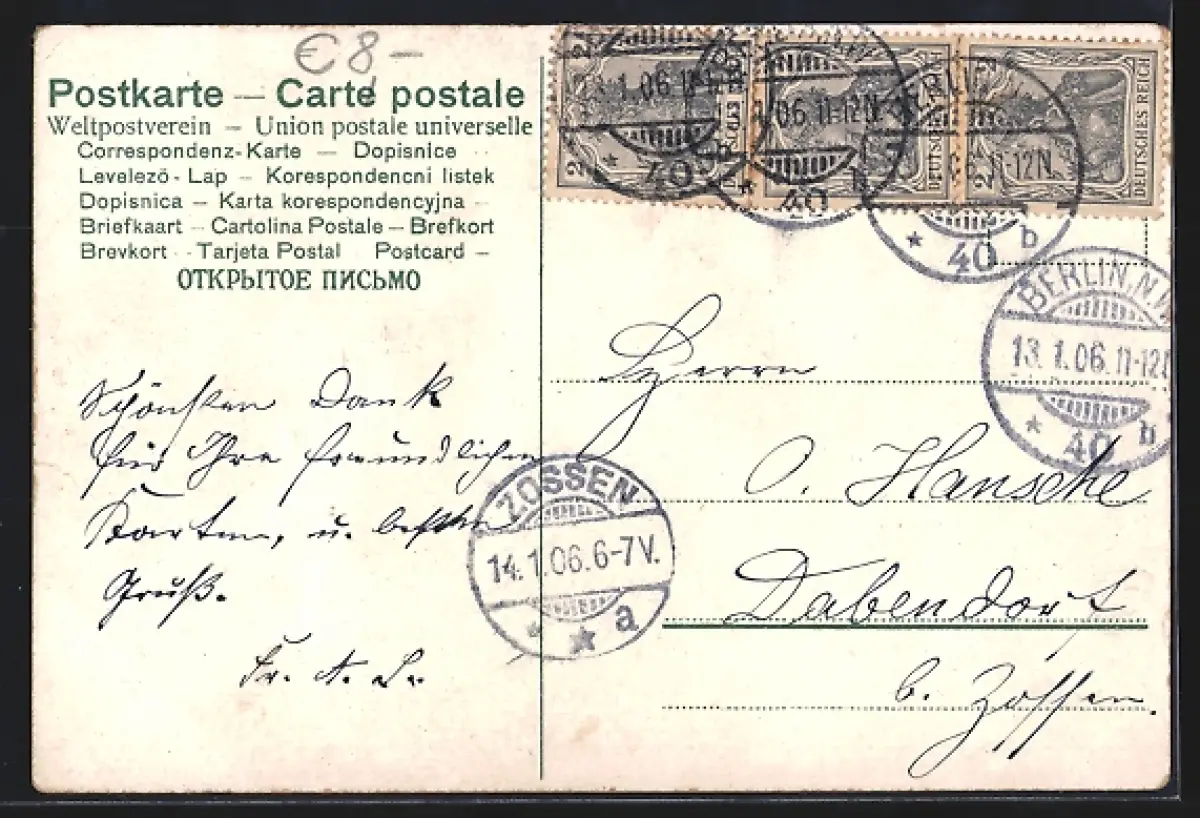 € 8,-
Postkarte — Carte postale
Weltpostverein – Union postale universelle
Correspondenz-Karte — Dopisnice
Levelező-Lap – Korespondencni listek
Dopisnica – Karta korespondencyjna
Briefkaart – Cartolina Postale – Brefkort
Brevkort Tarjeta Postal Postcard –
ОТКРЫТОЕ ПИСЬМО
Schönsten Dank
für Ihre freundlichen
Karten, u. besten
Gruß.
Fr. A. L.
2 2 DEUTSCHES REICH
13.1.06.11-12N.
40 b
BERLIN.N.W.
13.1.06.11-12N.
40 b
ZOSSEN
14.1.06.6-7V.
a
Herrn
O. Hansche
Dabendorf
b. Zossen.